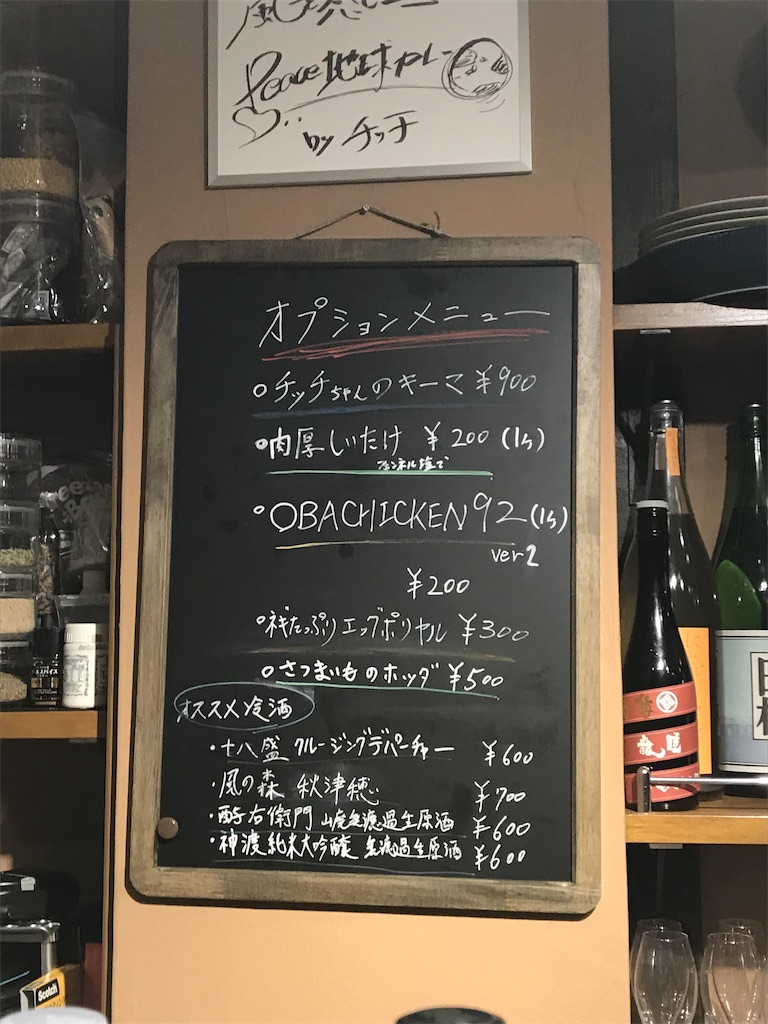 Peace地球カレー
by チッチ
オプションメニュー
○チッチちゃんのキーマ ¥900
○肉厚しいたけ ¥200 (1ヶ)
フェンネル塩で
○OBACHICKEN92 (1ヶ)
ver2
¥200
○ネギたっぷりエッグポリヤル ¥300
○さつまいものホッダ ¥500
オススメ冷酒
・十八盛 クルージングデパーチャー ¥600
・風の森 秋津穂 ¥700
・酉与右衛門 山廃無濾過生原酒 ¥600
・神渡 純米大吟醸 無濾過生原酒 ¥600
Scotch